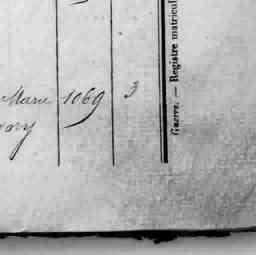 Marie 1069 3
Guerre. — Registre matricul